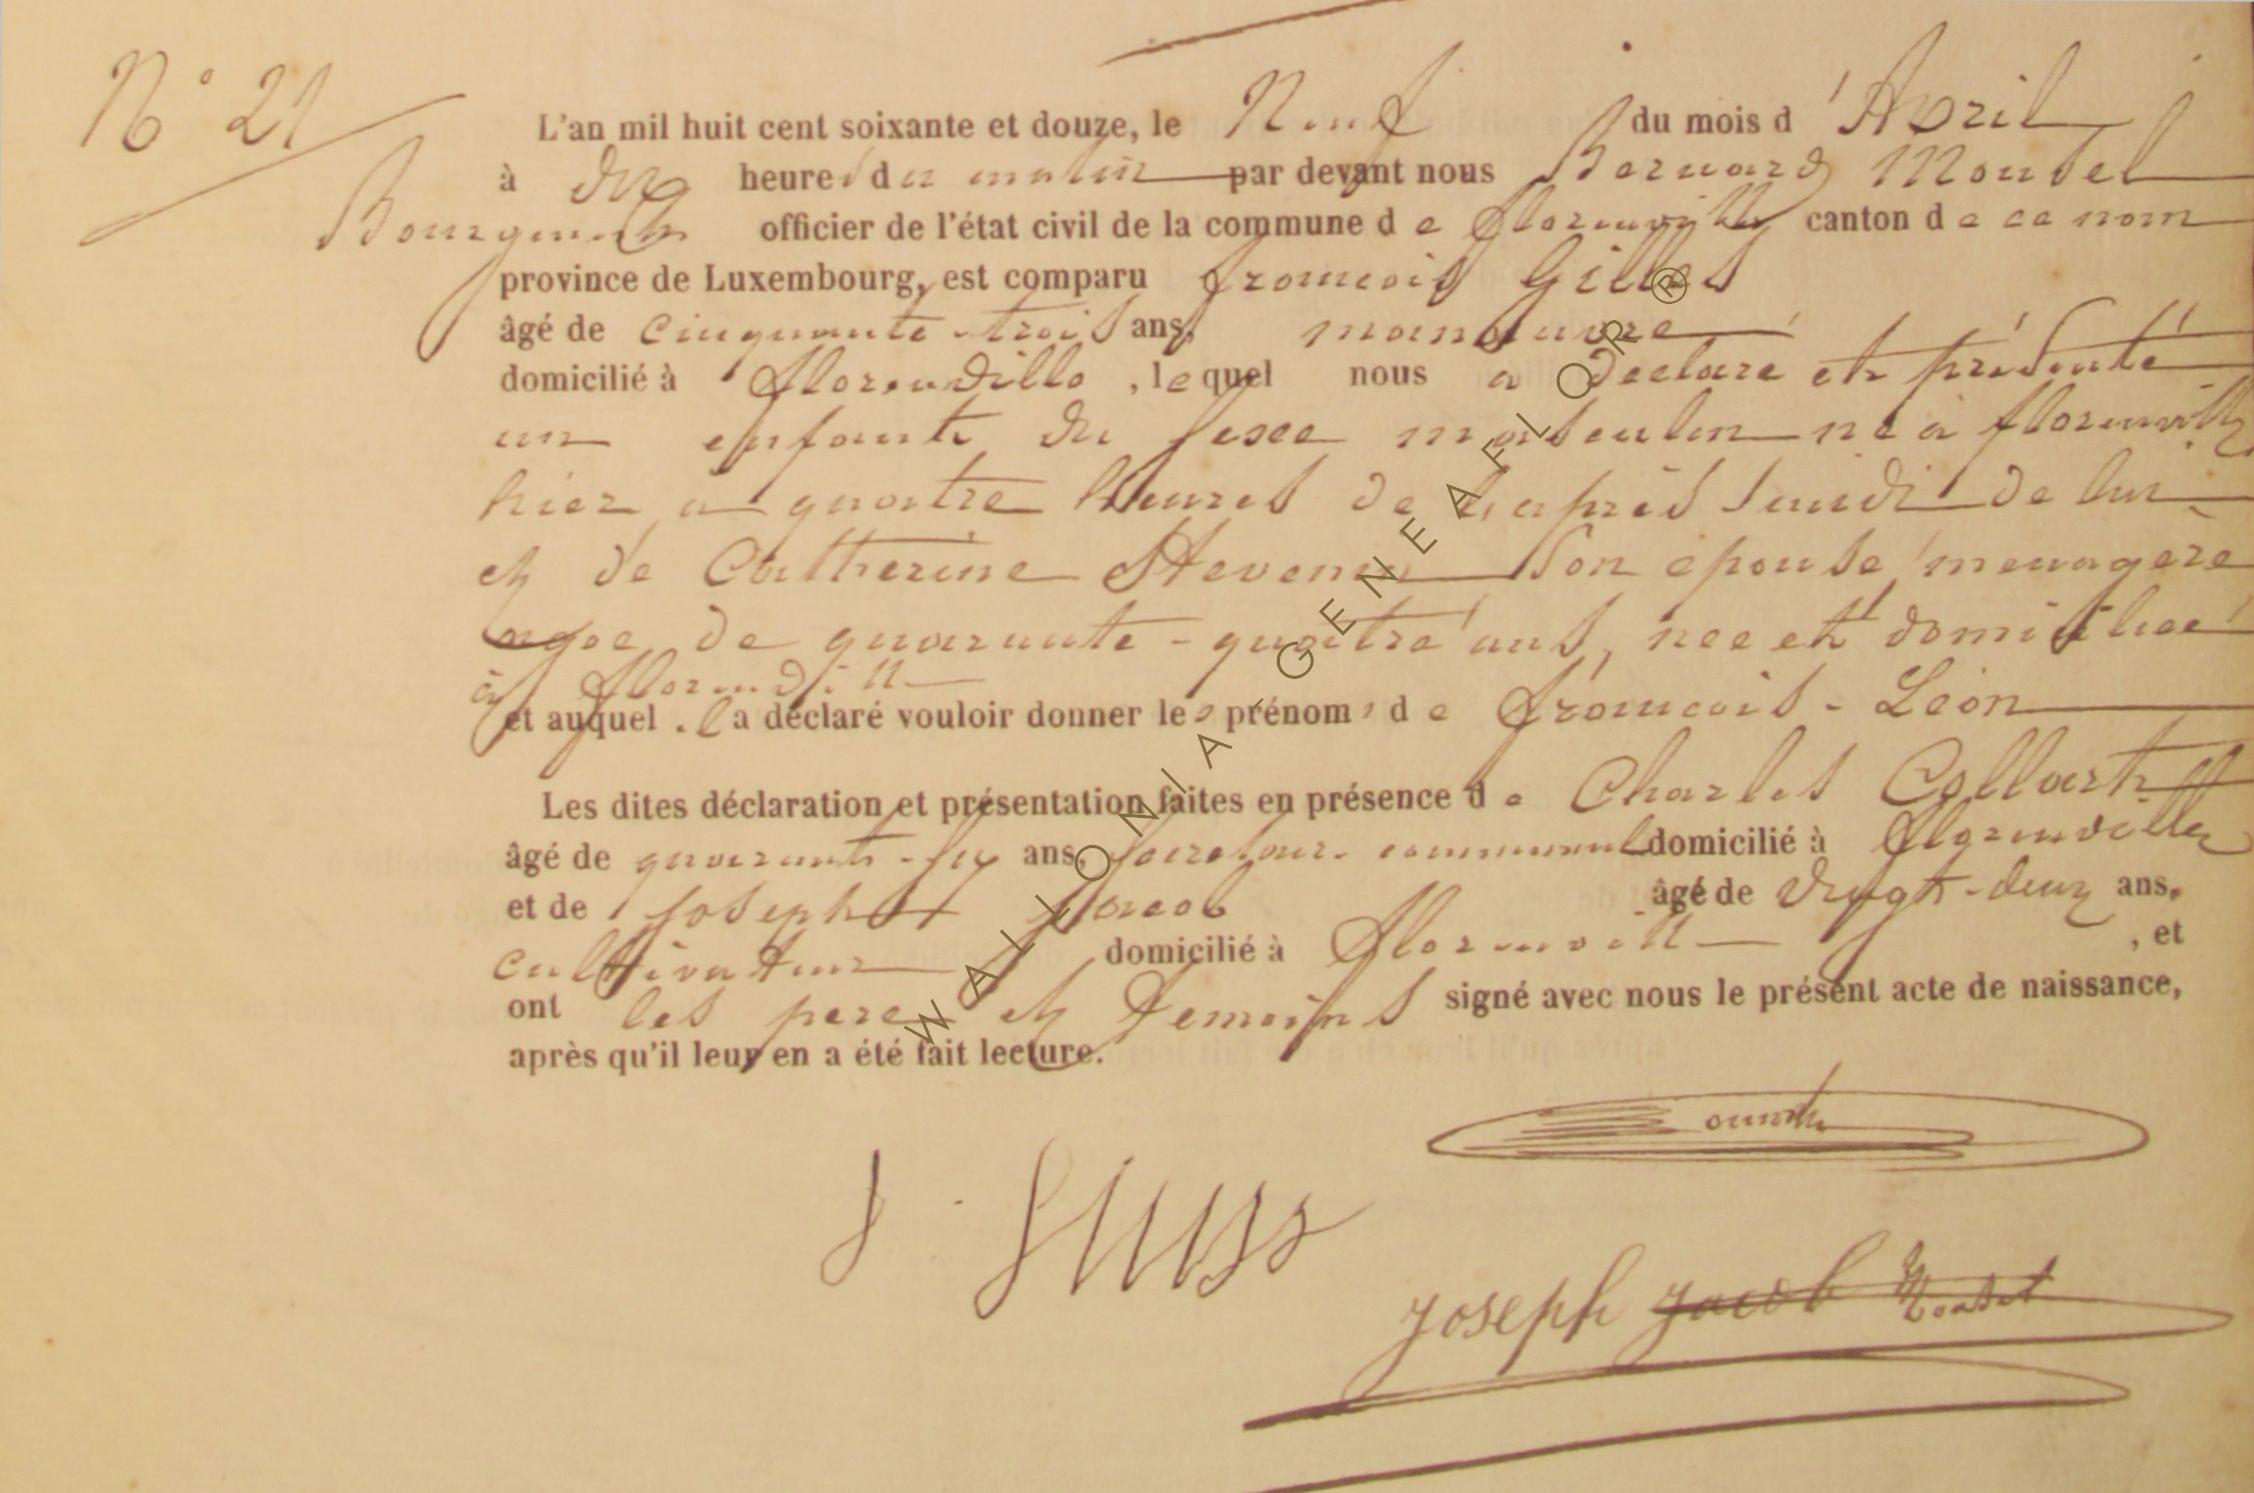 N° 21
L'an mil huit cent soixante et douze, le Neuf du mois d'Avril
à dix heures du matin par devant nous Bernard Moutel
Bourgmestre officier de l'état civil de la commune de florenville canton de ce nom
province de Luxembourg, est comparu francois Gilles
âgé de cinquante-trois ans, manœuvre
domicilié à florenville, lequel nous a déclaré et présenté
un enfant du sexe masculin né à florenville
hier à quatre heures de l'après midi de lui
et de Catherine Stevenin son épouse ménagère
agée de quarante-quatre ans, née et domiciliée
à florenville
et auquel il a déclaré vouloir donner les prénoms de francois-Léon
Les dites déclaration et présentation faites en présence de Charles Collart
âgé de quarante-six ans, communal domicilié à florenville
et de Joseph Jacob âgé de vingt-deux ans,
cultivateur domicilié à florenville, et
ont les père et témoins signé avec nous le présent acte de naissance,
après qu'il leur en a été fait lecture.
joseph jacob
WALLONIA-GENEAFLOR ®